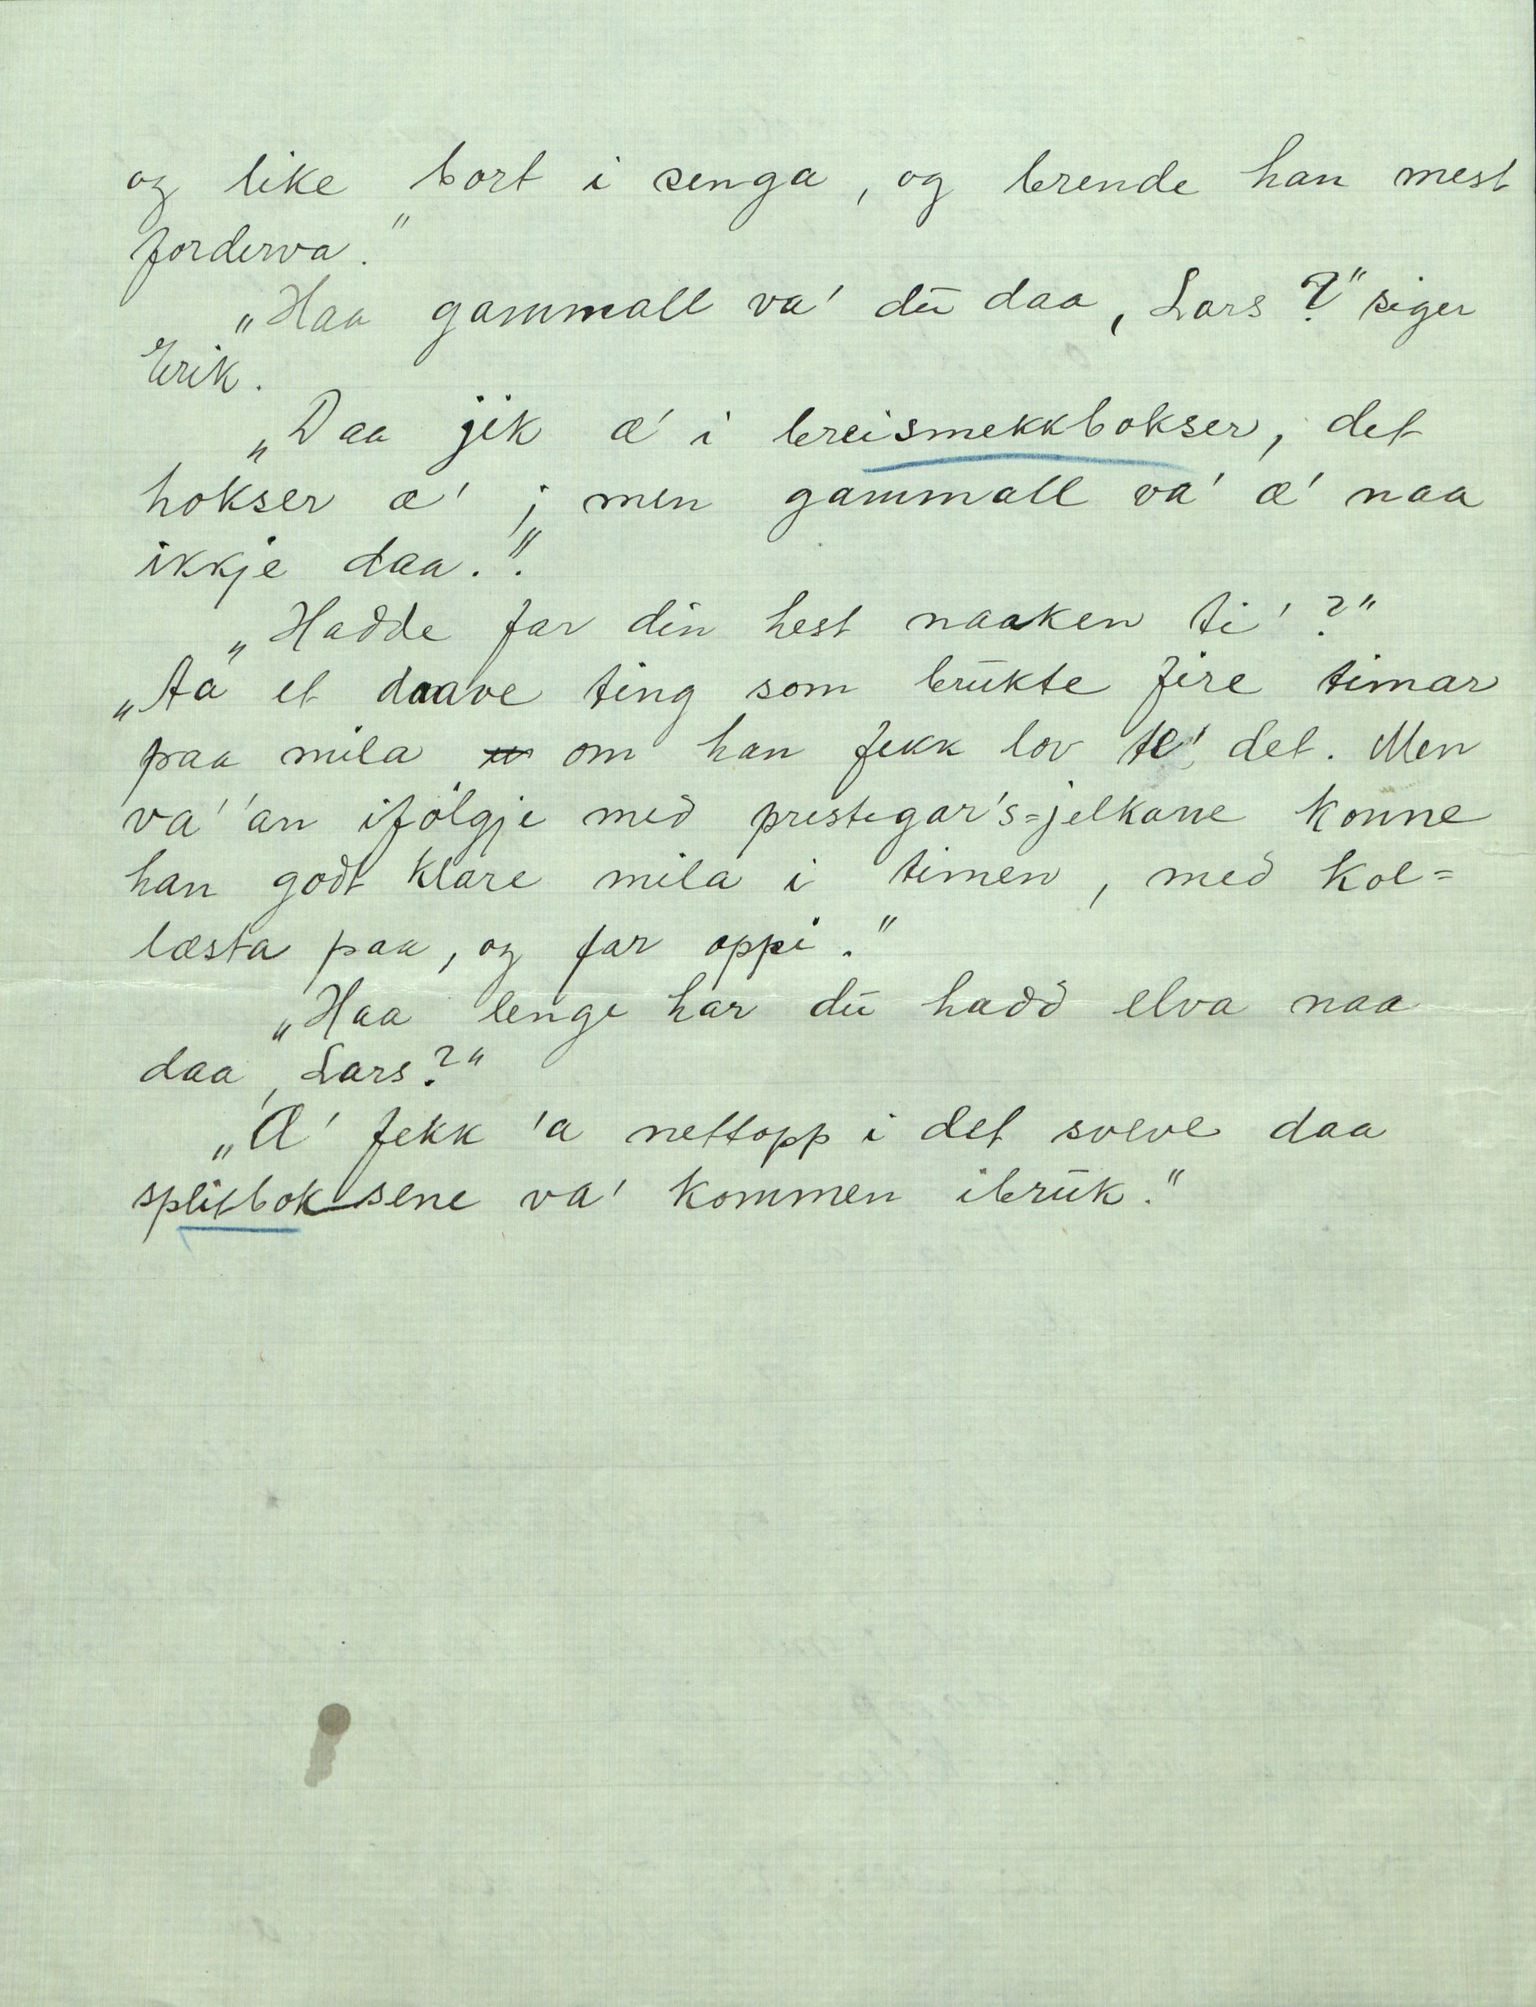 og like bort i senga, og brende han mest
forderva."
„Haa gammall va' du daa, Lars?" siger
Erik.
„Daa jik æ' i breismekkbokser, det
hokser æ'; men gammall va' æ' naa
ikkje daa.".
„Hadde far din hest naaken ti'?"
„Aa et daave ting som brukte fire timar
paa mila om han fekk lov te' det. Men
va' 'an ifölgje med prestegar's=jelkane konne
han godt klare mila i timen, med kol=
læsta paa, og far oppi."
„Haa lenge har du hadd elva naa
daa, Lars?"
„Æ' fekk 'a nettopp i det sveve daa
splitboksene va' kommen ibruk."